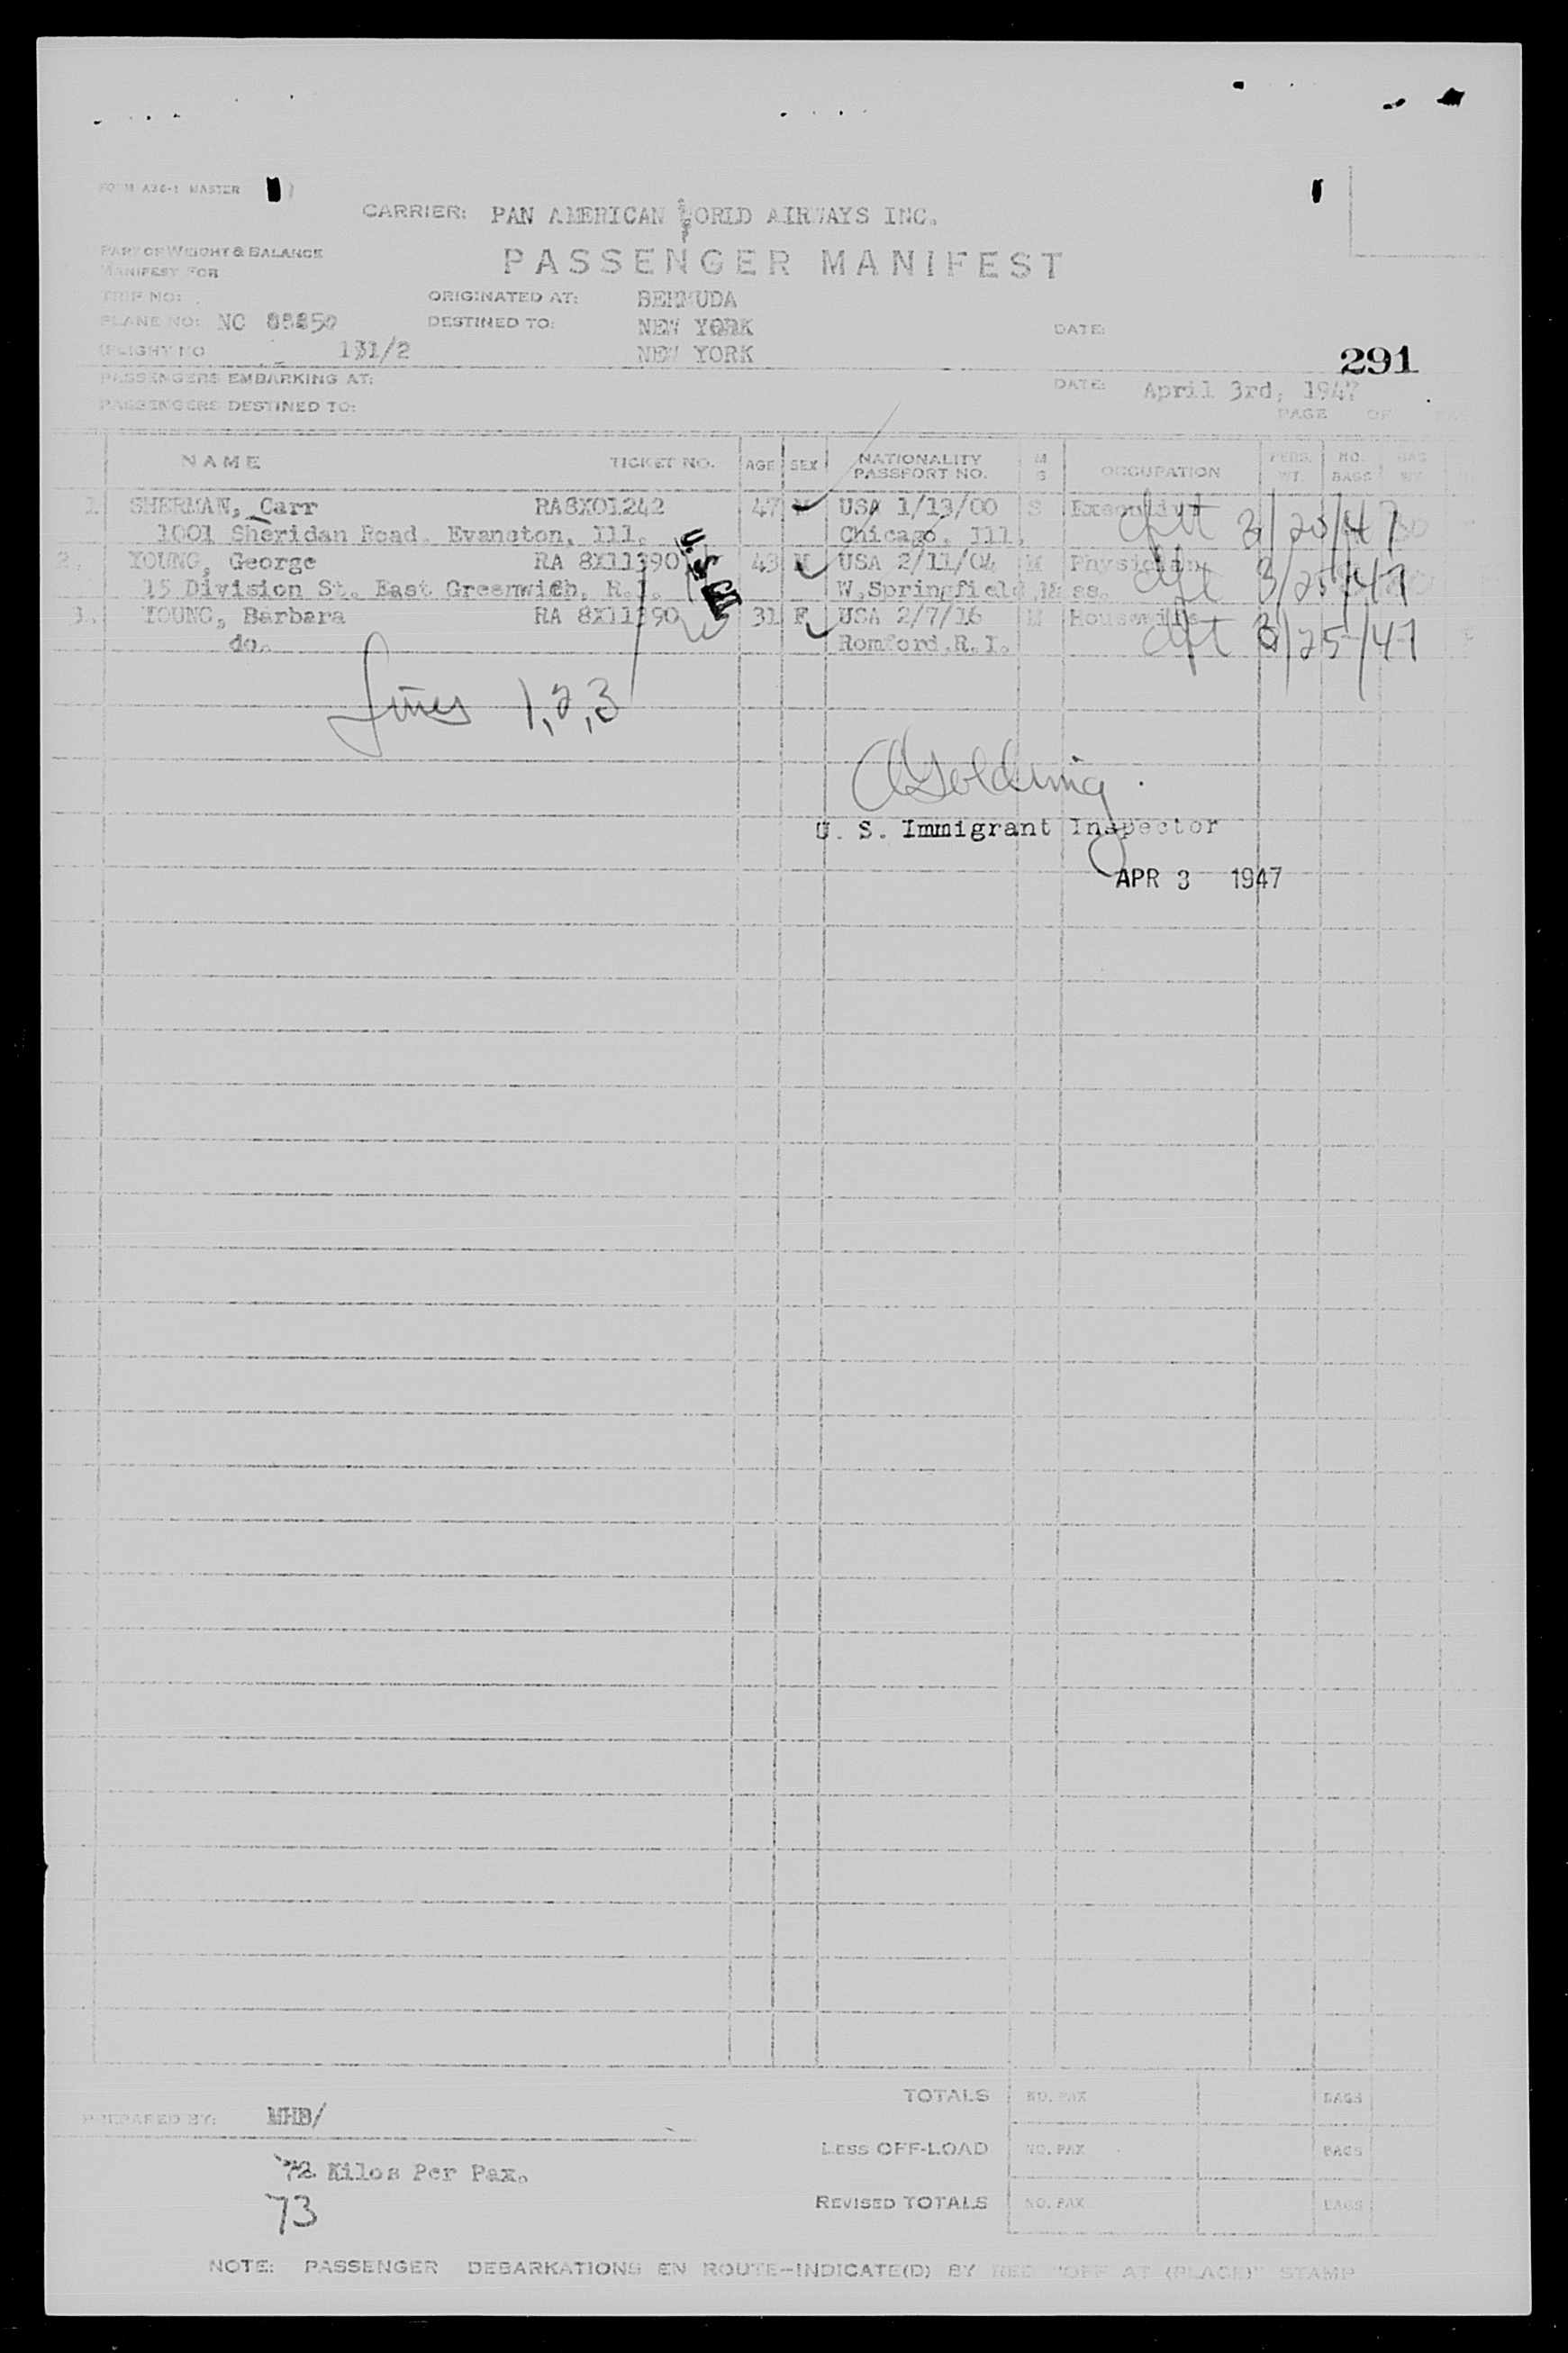 FORM A36-1 MASTER
CARRIER: PAN AMERICAN WORLD AIRWAYS INC.
PART OF WEIGHT & BALANCE
MANIFEST FOR
PASSENGER MANIFEST
TRIP NO: ORIGINATED AT: BERMUDA
PLANE NO: NC 88850 DESTINED TO: NEW YORK DATE:
FLIGHT NO 131/2 NEW YORK
291
PASSENGERS EMBARKING AT: DATE: April 3rd, 1947
PASSENGERS DESTINED TO: PAGE OF
NAME TICKET NO. AGE SEX NATIONALITY PASSPORT NO. M S OCCUPATION PERS. WT. NO. BAGS BAG WT
1. SHERMAN, Carr RA8X01242 47 M USA 1/13/00 S Executive 3/20/47
1001 Sheridan Road. Evanston, Ill. Chicago, Ill.
U.S.C.
2. YOUNG, George RA 8X11390 43 M USA 2/11/04 M Physician dft 3/25/47
15 Division St. East Greenwich, R.I. W.Springfield,Mass.
3. YOUNG, Barbara RA 8X11390 31 F USA 2/7/16 M Housewife dft 3/25/47
do. Romford,R.I.
Lines 1,2,3
AGolding.
U. S. Immigrant Inspector
APR 3 1947
TOTALS NO. PAX BAGS
PREPARED BY: MHB/
LESS OFF-LOAD NO. PAX BAGS
72 Kilos Per Pax.
73
REVISED TOTALS NO. PAX BAGS
NOTE: PASSENGER DEBARKATIONS EN ROUTE-INDICATE(D) BY RED "OFF AT (PLACE)" STAMP